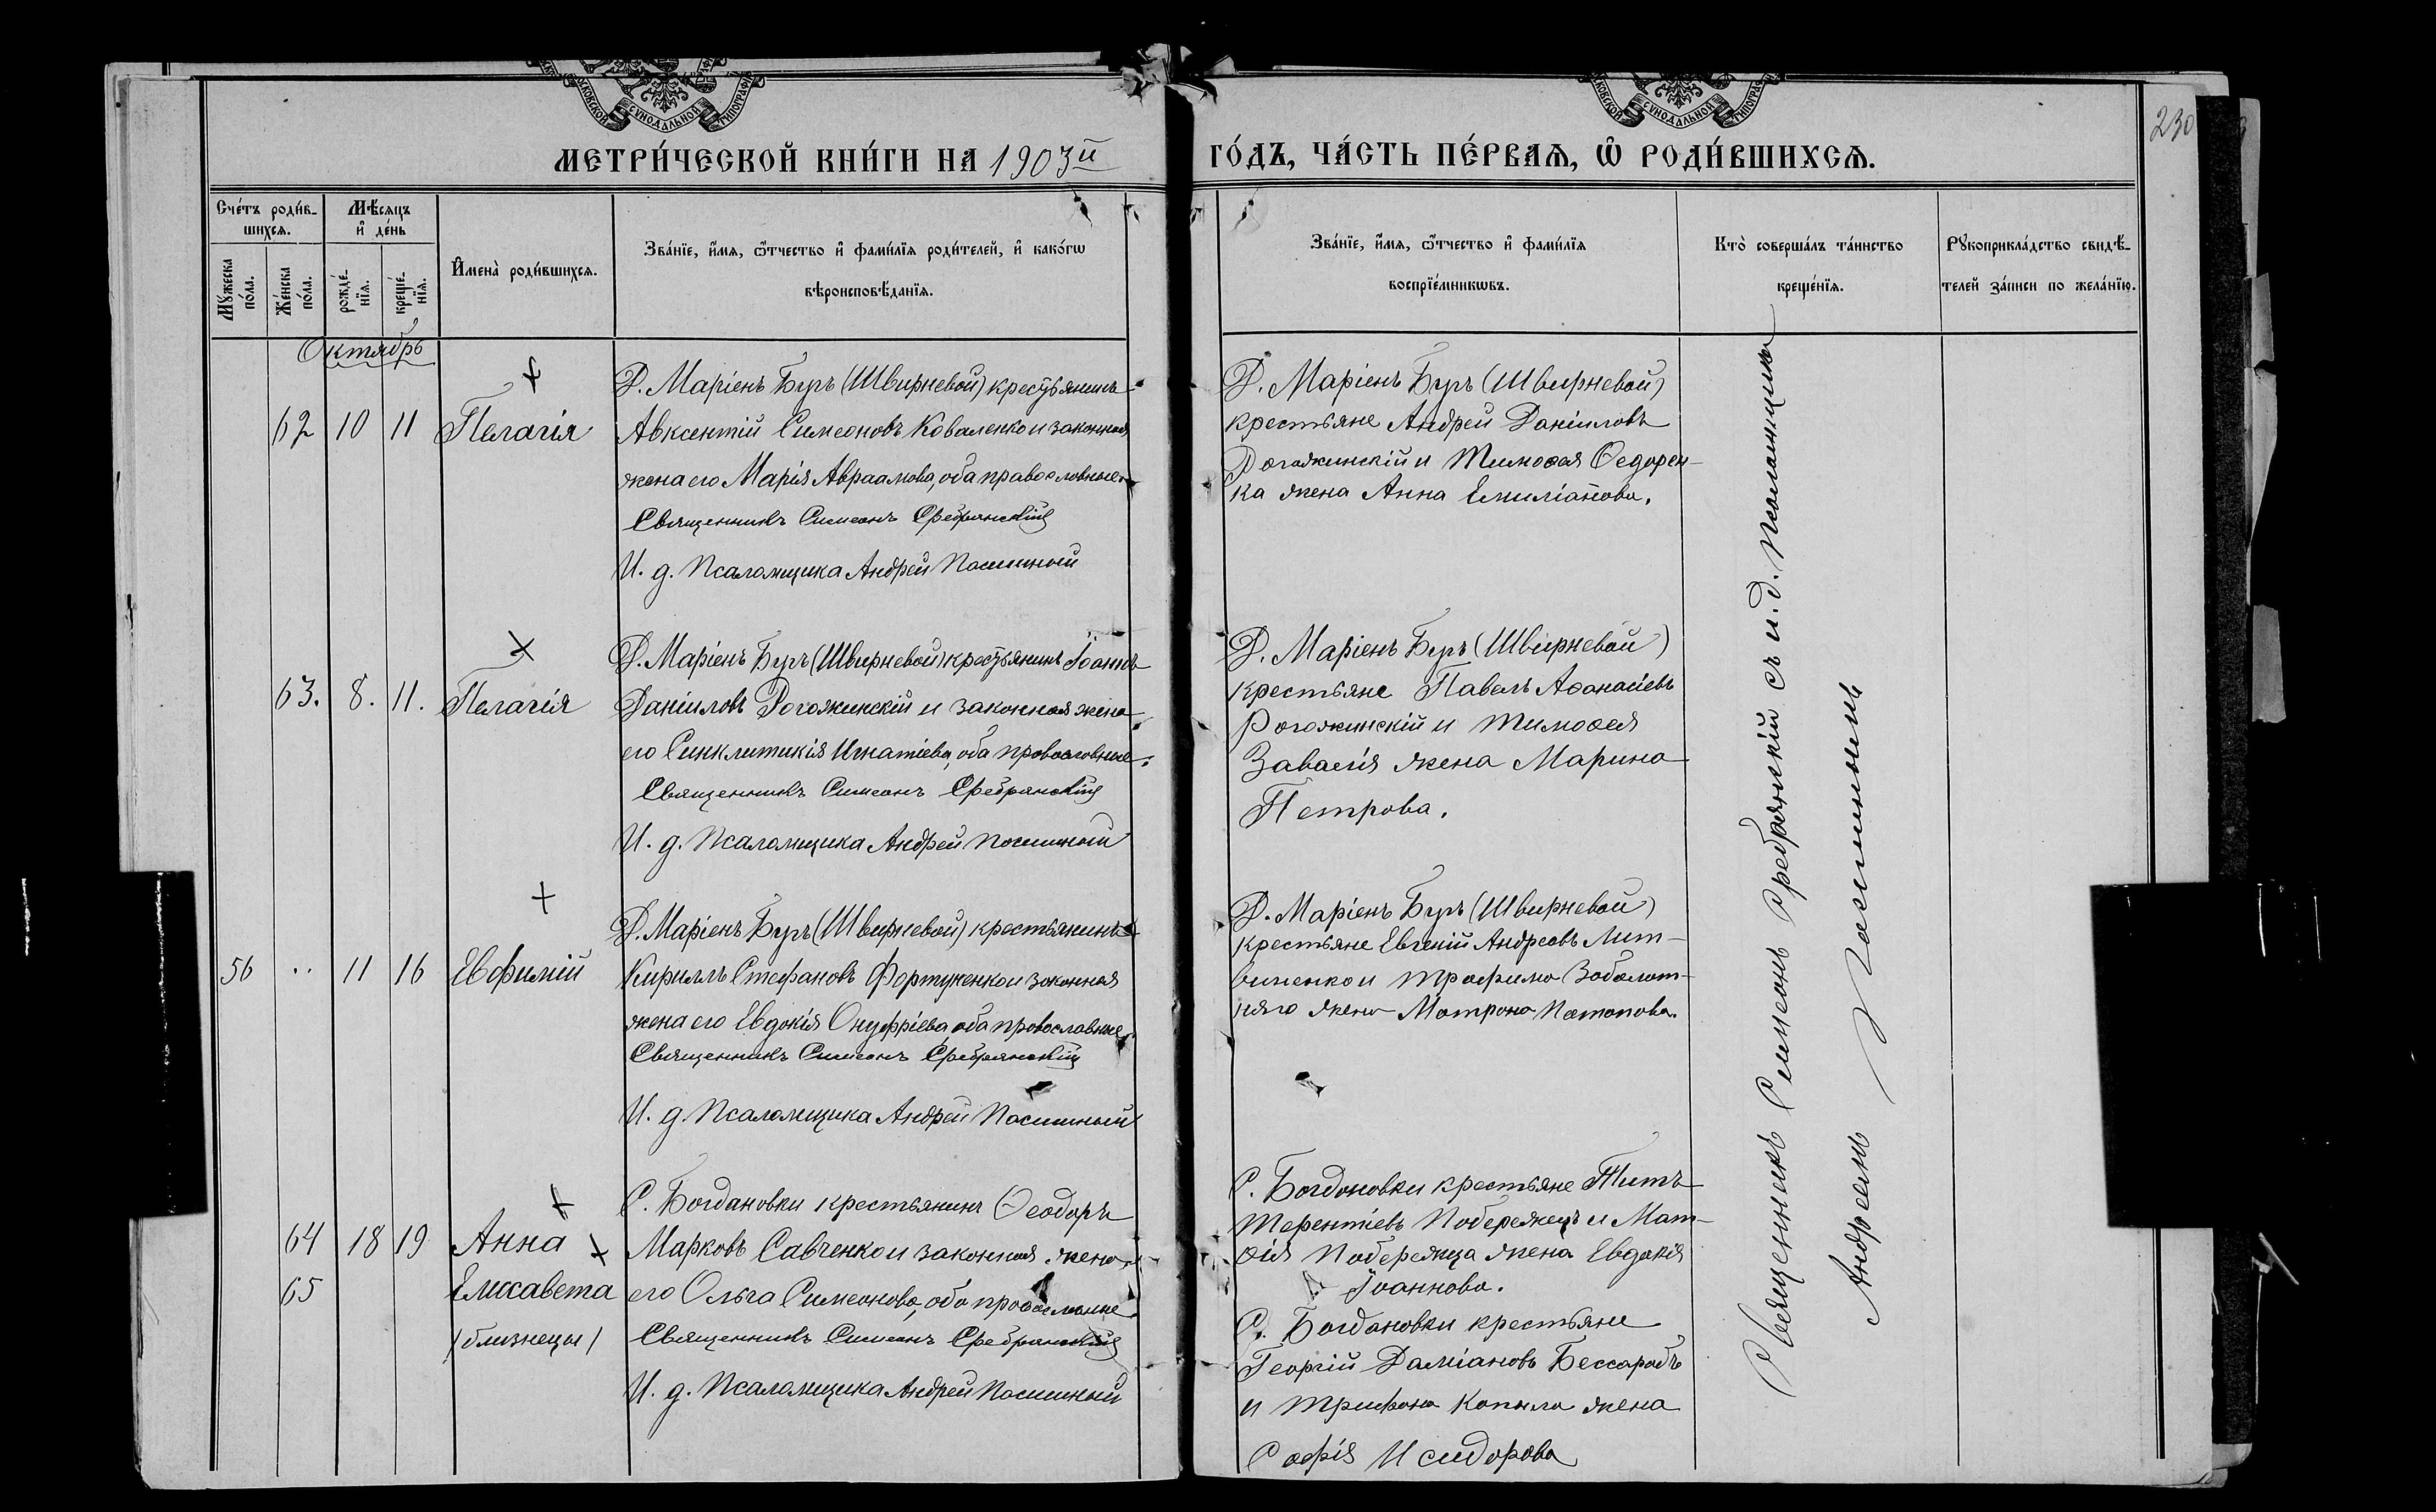 МОСКОВСКОЙ СѴНОДАЛЬНОЙ ТИПОГРАФІИ
МОСКОВСКОЙ СѴНОДАЛЬНОЙ ТИПОГРАФІИ
230
МЕТРИ́ЧЕСКОЙ КНИ́ГИ НА 1903й ГО́ДЪ, ЧА́СТЬ ПЕ́РВАѦ, Ѡ҆ РОДИ́ВШИХСѦ.
Сче́тъ роди́в-
шихсѧ.
Мꙋ́жеска по́ла.
Же́нска по́ла.
Мѣ́сѧцъ
и҆ де́нь
рожде́-
нїѧ.
креще́-
нїѧ.
И҆мена̀ роди́вшихсѧ.
Зва́нїе, и҆́мѧ, ѻ҆́тчество и҆ фами́лїѧ роди́телей, и҆ како́гѡ
вѣроисповѣ́данїѧ.
Зва́нїе, и҆́мѧ, ѻ҆́тчество и҆ фами́лїѧ
воспрїе́мникѡвъ.
Кто̀ соверша́лъ та́инство
креще́нїѧ.
Рꙋкоприкла́дство свидѣ́-
телей за́писи по жела́нїю.
Октябрь
62 10 11 Пелагія
Д. Маріенъ Буръ (Швирневой) крестьянинъ
Авксентій Симеоновъ Коваленко и законная
жена его Марія Авраамова, оба православные.
Священникъ Симеонъ Сребрянскій
И. д. Псаломщика Андрей Пасишный
Д. Маріенъ Буръ (Швирневой)
крестьяне Андрей Даніиловъ
Рогожинскій и Тимоѳея Ѳедорен-
ка жена Анна Емиліанова.
63. 8. 11. Пелагія
Д. Маріенъ Буръ (Швирневой) крестьянинъ Іоаннъ
Даніиловъ Рогожинскій и законная жена
его Синклитикія Игнатіева, оба православные.
Священникъ Симеонъ Сребрянскій
И. д. Псаломщика Андрей Пасишный
Д. Маріенъ Буръ (Швирневой)
крестьяне Павелъ Аѳанасіевъ
Рогожинскій и Тимоѳея
жена Марина
Петрова.
56 .. 11 16 Евфимій
Д. Маріенъ Буръ (Швирневой) крестьянинъ
Кириллъ Стефановъ Фортуненко и законная
жена его Евдокія Онуфріева, оба православные.
Священникъ Симеонъ Сребрянскій
И. д. Псаломщика Андрей Пасишный
Д. Маріенъ Буръ (Швирневой)
крестьяне Евгеній Андреевъ Лит-
виненко и Трофима Заболот-
няго жена Матрона Потапова.
64 18 19 Анна
65 Елисавета
(близнецы)
С. Богдановки крестьянинъ Ѳеодоръ
Марковъ Савченко и законная жена
его Ольга Симеонова, оба православные.
Священникъ Симеонъ Сребрянскій
И. д. Псаломщика Андрей Пасишный
С. Богдановки крестьяне Титъ
Терентіевъ Побережецъ и Мат-
ѳія Побережца жена Евдокія
Іоаннова.
С. Богдановки крестьяне
Георгій Даміановъ Бессарабъ
и Трифона Копыла жена
Софія Исидорова
Священникъ Симеонъ Сребрянскій съ и. д. псаломщика
Андреемъ Пасишнымъ